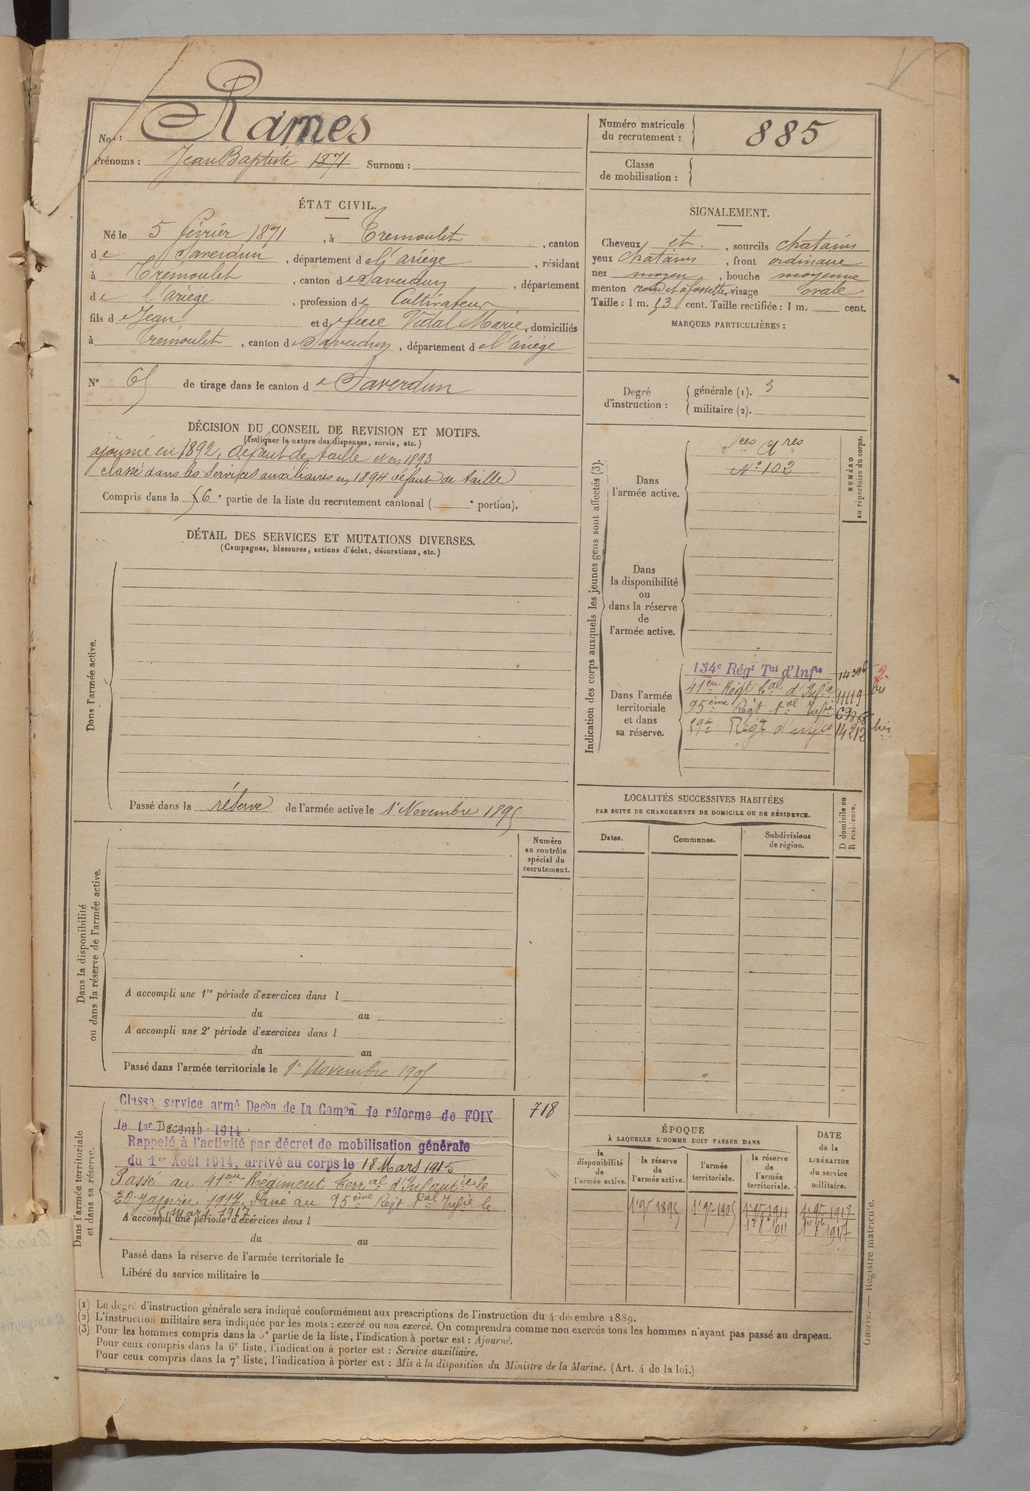 Nom : Rames
Prénoms : Jean Baptiste 1871 Surnom :
Numéro matricule du recrutement : 885
Classe de mobilisation :
ÉTAT CIVIL.
Né le 5 février 1871, à Tremoulet, canton
de Saverdun, département de l'ariège, résidant
à Trémoulet, canton de Saverdun, département
de l'ariège, profession de Cultivateur
fils de Jean et de feue Vidal Marie, domiciliés
à Trémoulet, canton de Saverdun, département de l'ariège
N° 65 de tirage dans le canton de Saverdun
SIGNALEMENT.
Cheveux et, sourcils chatains
yeux chatains, front ordinaire
nez moyen, bouche moyenne
menton rond et à fossette, visage ovale.
Taille : 1 m. 53 cent. Taille rectifiée : 1 m. cent.
MARQUES PARTICULIÈRES :
Degré d'instruction : générale (1). 3
militaire (2).
DÉCISION DU CONSEIL DE REVISION ET MOTIFS.
(Indiquer la nature des dispenses, sursis, etc.)
ajourné en 1892, défaut de taille en 1893
classé dans les services auxiliaires en 1894 défaut de taille
Compris dans la 6e partie de la liste du recrutement cantonal ( e portion).
DÉTAIL DES SERVICES ET MUTATIONS DIVERSES.
(Campagnes, blessures, actions d'éclat, décorations, etc.)
Dans l'armée active.
Passé dans la réserve de l'armée active le 1er Novembre 1895
Indication des corps auxquels les jeunes gens sont affectés (3).
NUMÉRO au répertoire du corps.
Dans l'armée active.
Sces Qres
N° 102
Dans la disponibilité ou dans la réserve de l'armée active.
Dans l'armée territoriale et dans sa réserve.
134e Régt Tal d'Infie
41eme Régt Tal d'Infie 11119
95ème Régt Tal Infie
Régt d'Infie 14212 bis
LOCALITÉS SUCCESSIVES HABITÉES
PAR SUITE DE CHANGEMENTS DE DOMICILE OU DE RÉSIDENCE.
Dates. Communes. Subdivisions de région.
D domicile ou R résidence.
Dans la disponibilité ou dans la réserve de l'armée active.
Numéro au contrôle spécial du recrutement.
A accompli une 1re période d'exercices dans l
du au
A accompli une 2e période d'exercices dans l
du au
Passé dans l'armée territoriale le 1er Novembre 1905
Dans l'armée territoriale et dans sa réserve.
Classé service armé Decon de la Comon de réforme de FOIX
le 1er Decemb. 1914
718
Rappelé à l'activité par décret de mobilisation générale
du 1er Août 1914, arrivé au corps le 18 Mars 1915
Passé au 41eme Régiment Terral d'Infanterie le
20 janvier 1917. Passé au 95ème Régt Tal Infie le
15 mars 1917.
A accompli une période d'exercices dans l
du au
Passé dans la réserve de l'armée territoriale le
Libéré du service militaire le
ÉPOQUE
À LAQUELLE L'HOMME DOIT PASSER DANS
la disponibilité de l'armée active.
la réserve de l'armée active.
l'armée territoriale.
la réserve de l'armée territoriale.
DATE de la LIBÉRATION du service militaire.
1er 9bre 1895 1er 9bre 1905 1er 9bre 1911
(1) Le degré d'instruction générale sera indiqué conformément aux prescriptions de l'instruction du 4 décembre 1889.
(2) L'instruction militaire sera indiquée par les mots : exercé ou non exercé. On comprendra comme non exercés tous les hommes n'ayant pas passé au drapeau.
(3) Pour les hommes compris dans la 5e partie de la liste, l'indication à porter est : Ajourné.
Pour ceux compris dans la 6e liste, l'indication à porter est : Service auxiliaire.
Pour ceux compris dans la 7e liste, l'indication à porter est : Mis à la disposition du Ministre de la Marine. (Art. 4 de la loi.)
Guerre. — Registre matricule.